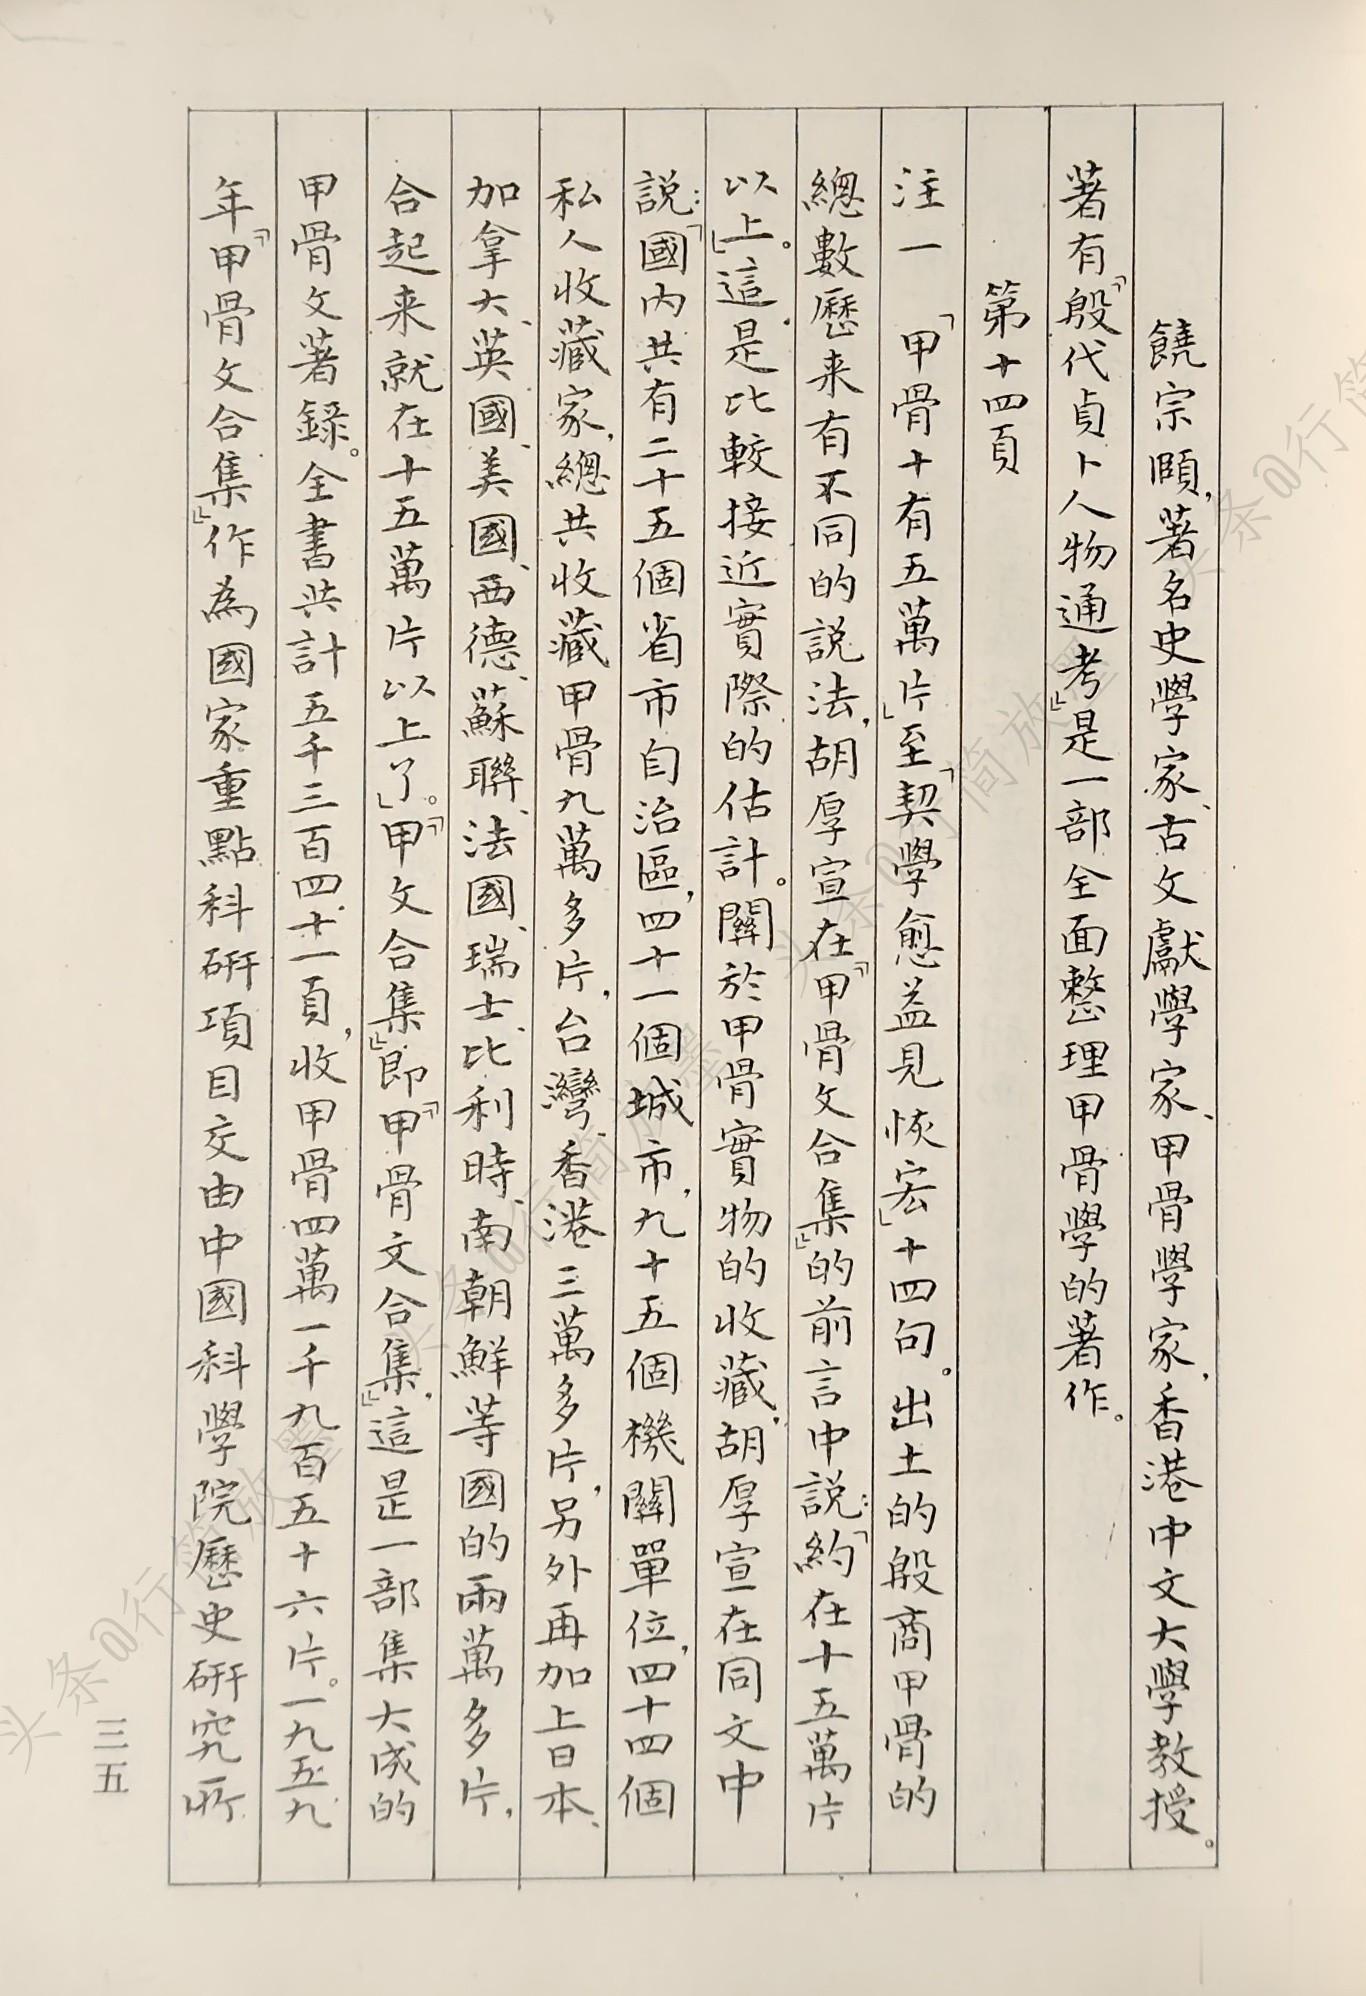 饒宗頤，著名史學家、古文獻學家、甲骨學學家，香港中文大學教授。
著有「殷代貞卜人物通考」是一部全面整理甲骨學的著作。
第十四頁
注一 「甲骨十有五萬片」至「契學愈益見恢宏」十四句。出土的殷商甲骨的
總數歷来有不同的説法，胡厚宣在『甲骨文合集』的前言中説：「約在十五萬片
以上」。這是比較接近實際的估計。關於甲骨實物的收藏，胡厚宣在同文中
説：「國内共有二十五個省市自治區，四十一個城市，九十五個機關單位，四十四個
私人收藏家，總共收藏甲骨九萬多片，台灣、香港三萬多片，另外再加上日本、
加拿大、英國、美國、西德、蘇聯、法國、瑞士、比利時、南朝鮮等國的兩萬多片，
合起来就在十五萬片以上了」。『甲文合集』即『甲骨文合集』，這是一部集大成的
甲骨文著錄。全書共計五千三百四十一頁，收甲骨四萬一千九百五十六片。一九五九
年『甲骨文合集』作為國家重點科研項目交由中國科學院歷史研究所
三五
头条@行简放墨
头条@行简放墨
头条@行简放墨
头条@行简